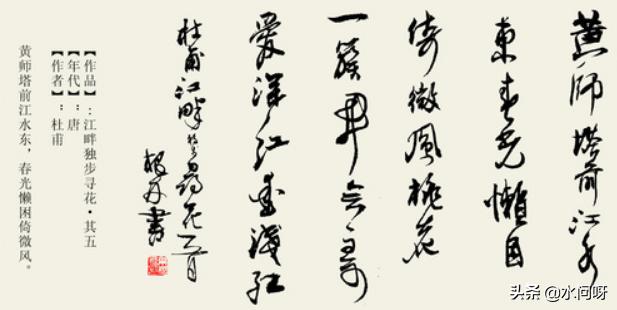 黄师塔前江水
東春光懒困
倚微風桃花
一簇開无主可
愛深红愛浅红
杜甫江畔
書
【作品】:江畔独步寻花·其五
【年代】:唐
【作者】:杜甫
黄师塔前江水东,春光懒困倚微风。
头条 @水问呀